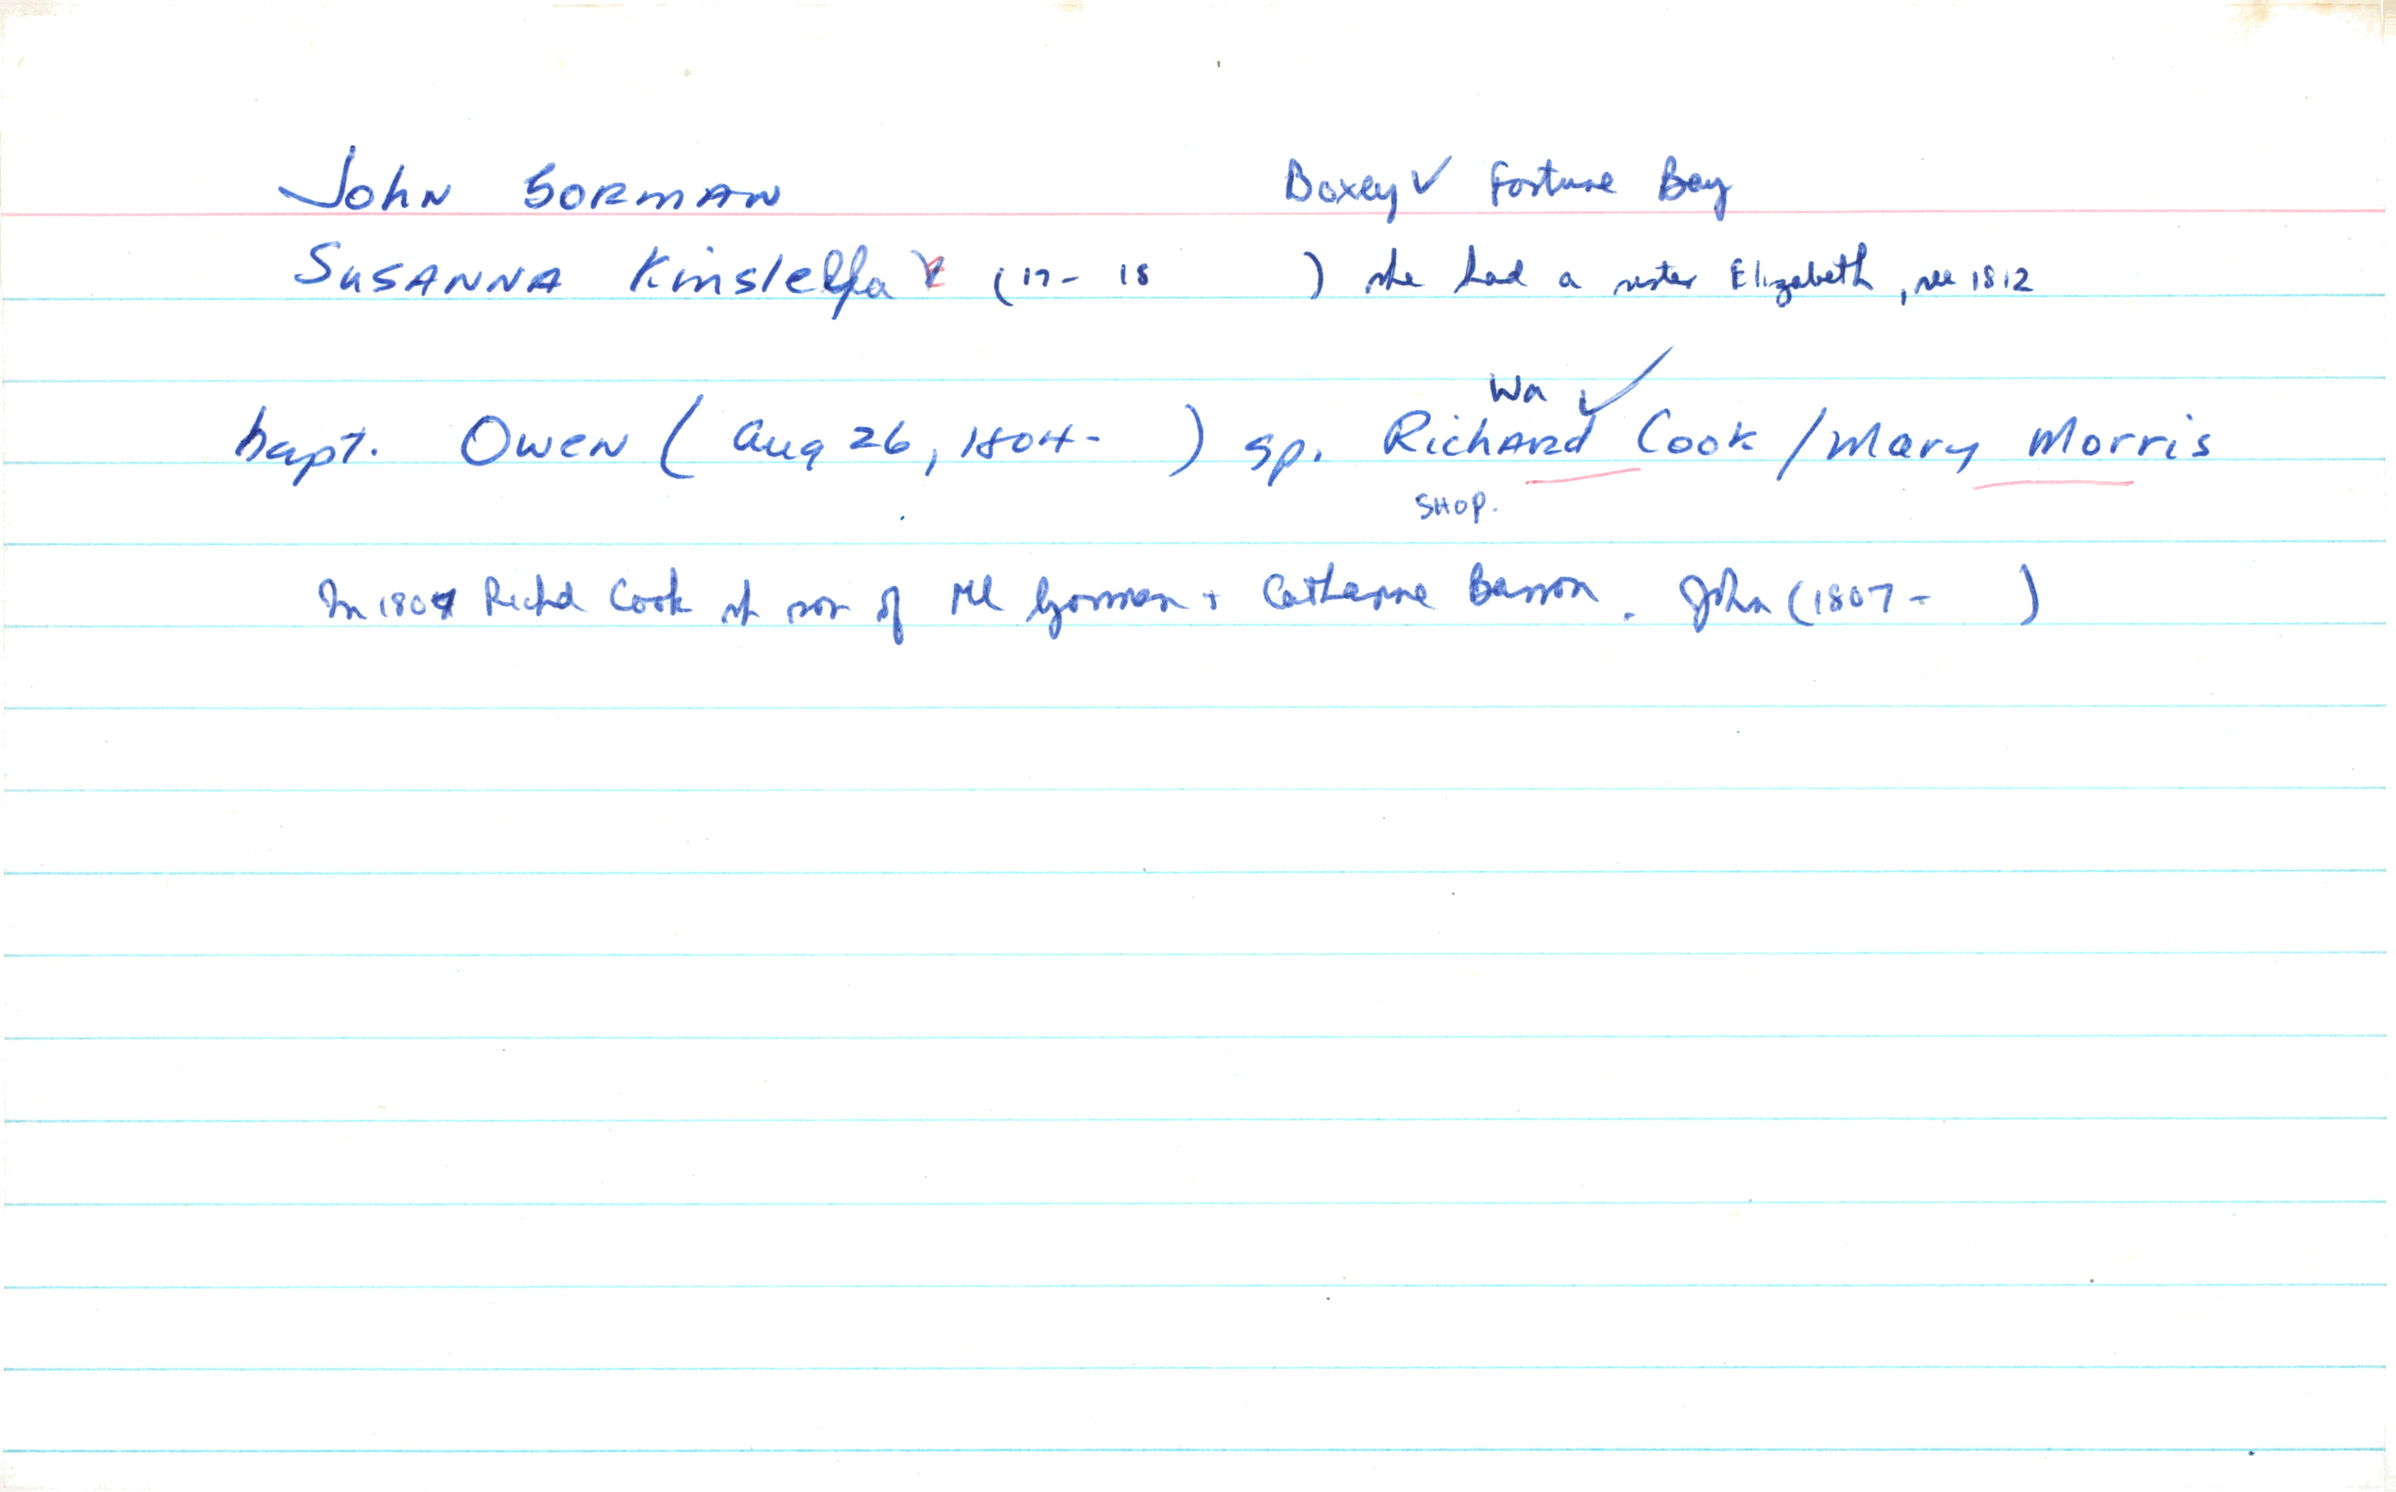 John GORMAN Boxey ✓ Fortune Bay
SUSANNA Kinslella (17- 18 ) she had a sister Elizabeth, see 1812
Wa ✓
bapt. Owen (Aug 26, 1804- ) sp. Richard Cook / Mary Morris
SHOP.
In 1809 Richd Cook of Ml Gorman + Catherine Barron. John (1807- )